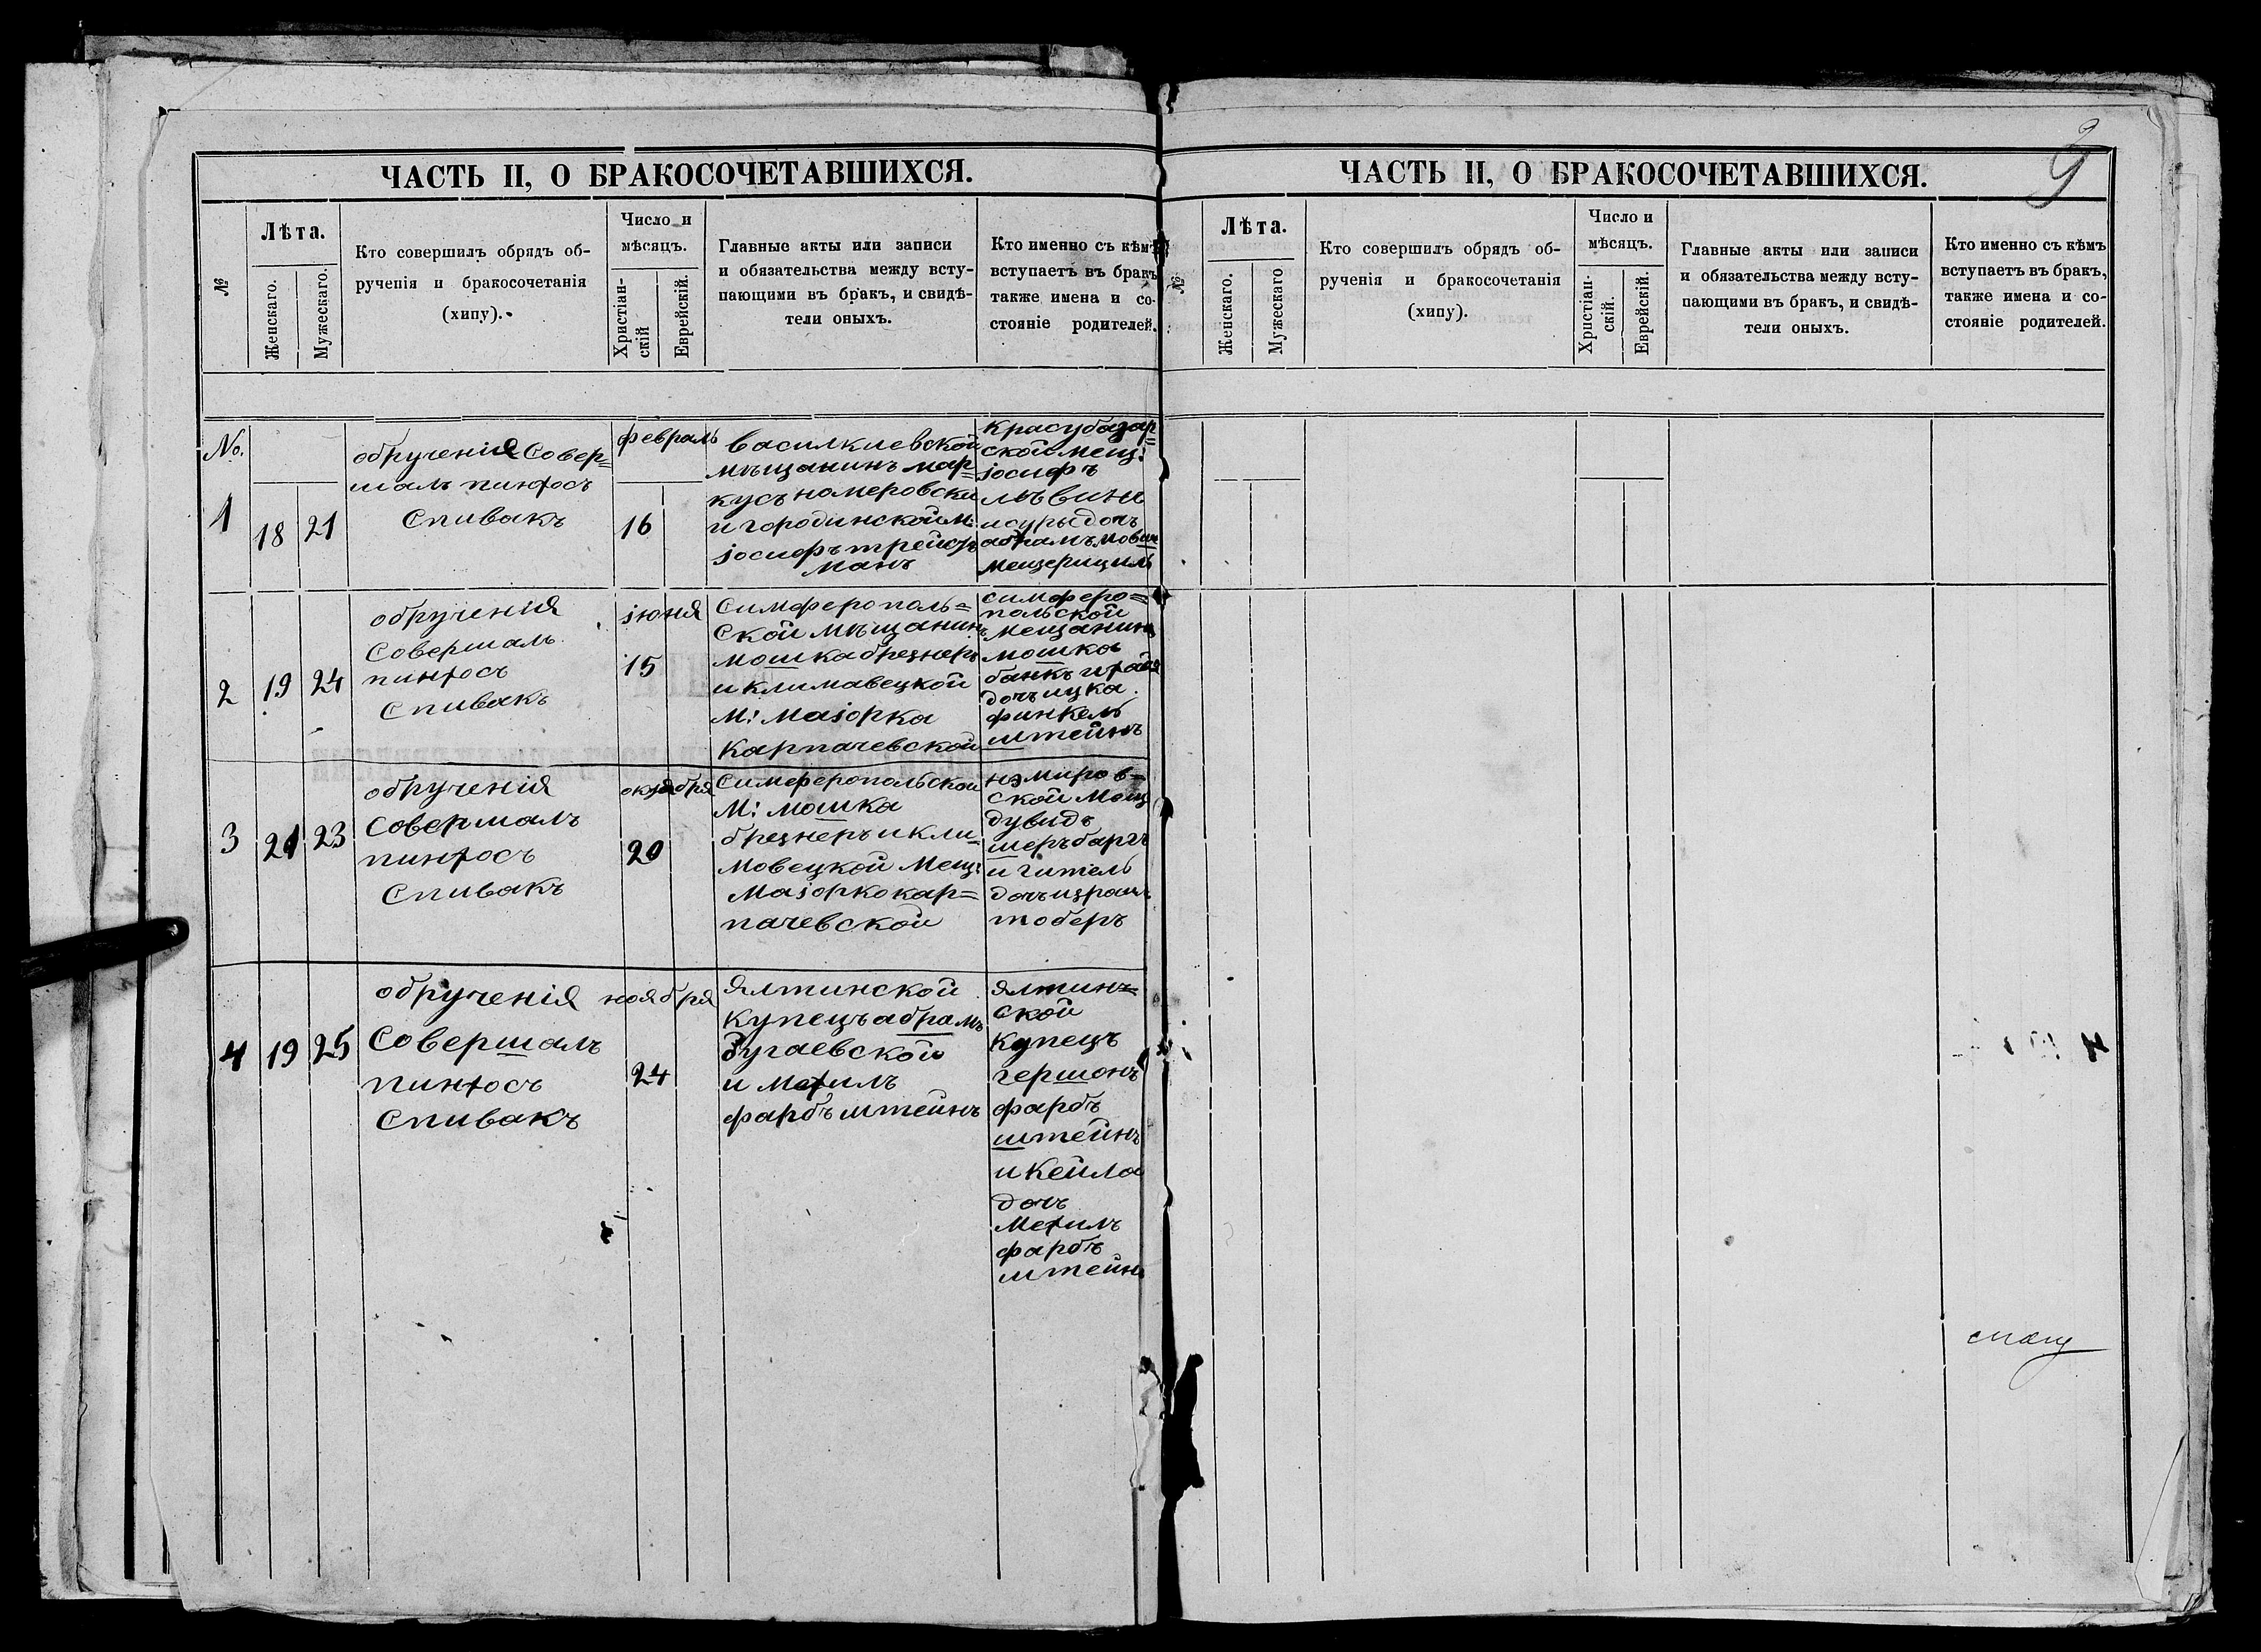 ЧАСТЬ II, О БРАКОСОЧЕТАВШИХСЯ.
№
Лѣта.
Женскаго.
Мужескаго.
Кто совершилъ обрядъ об-
рученія и бракосочетанія
(хипу).
Число и
мѣсяцъ.
Христіан-
скій
Еврейскій.
Главные акты или записи
и обязательства между всту-
пающими въ бракъ, и свидѣ-
тели оныхъ.
Кто именно съ кѣмъ
вступаетъ въ бракъ
также имена и со-
стояніе родителей.
No.
1
18
21
обрученія Совер=
шалъ пинхосъ
Спивакъ
февраль
16
василкиевской
мѣщанинъ мар=
кусъ номеровски
и городинской м:
јосифъ трейстъ
манъ
красубазар=
ской мещ:
јосифъ
лѣвинъ
и сурысдочъ
мещерициль
2
19
24
обрученія
Совершалъ
пинхосъ
Спивакъ
јюня
15
Симферополь=
ской мѣщанинъ
мошка брезнеръ
и климавецкой
М: маіорка
карпачевской
симферо=
польской
мещанинъ
мошко
банкъ
дочъ ицка
финкель
штейнъ
3
21
23
обрученія
Совершалъ
пинхосъ
Спивакъ
октября
20
Симферопольской
М: мошка
брезнеръ и кли=
мовецкой мещ:
маіорко кар=
пачевской
нэмиров=
ской мещ
дувидъ
шеръбаргъ
и гитель
дочъ израиль
тоберъ
4
19
25
обрученія
Совершалъ
пинхосъ
Спивакъ
ноября
24
Ялтинской
купецъ абрамъ
дугаевской
и мехилъ
фарбъштейнъ
ялтинъ=
ской
купецъ
гершонъ
фарбъ
штейнъ
и кейла
дочъ
мехилъ
фарбъ
штейнъ
9
ЧАСТЬ II, О БРАКОСОЧЕТАВШИХСЯ.
№
Лѣта.
Женскаго.
Мужескаго
Кто совершилъ обрядъ об-
рученія и бракосочетанія
(хипу).
Число и
мѣсяцъ.
Христіан-
скій.
Еврейскій.
Главные акты или записи
и обязательства между всту-
пающими въ бракъ, и свидѣ-
тели оныхъ.
Кто именно съ кѣмъ
вступаетъ въ бракъ,
также имена и со-
стояніе родителей.